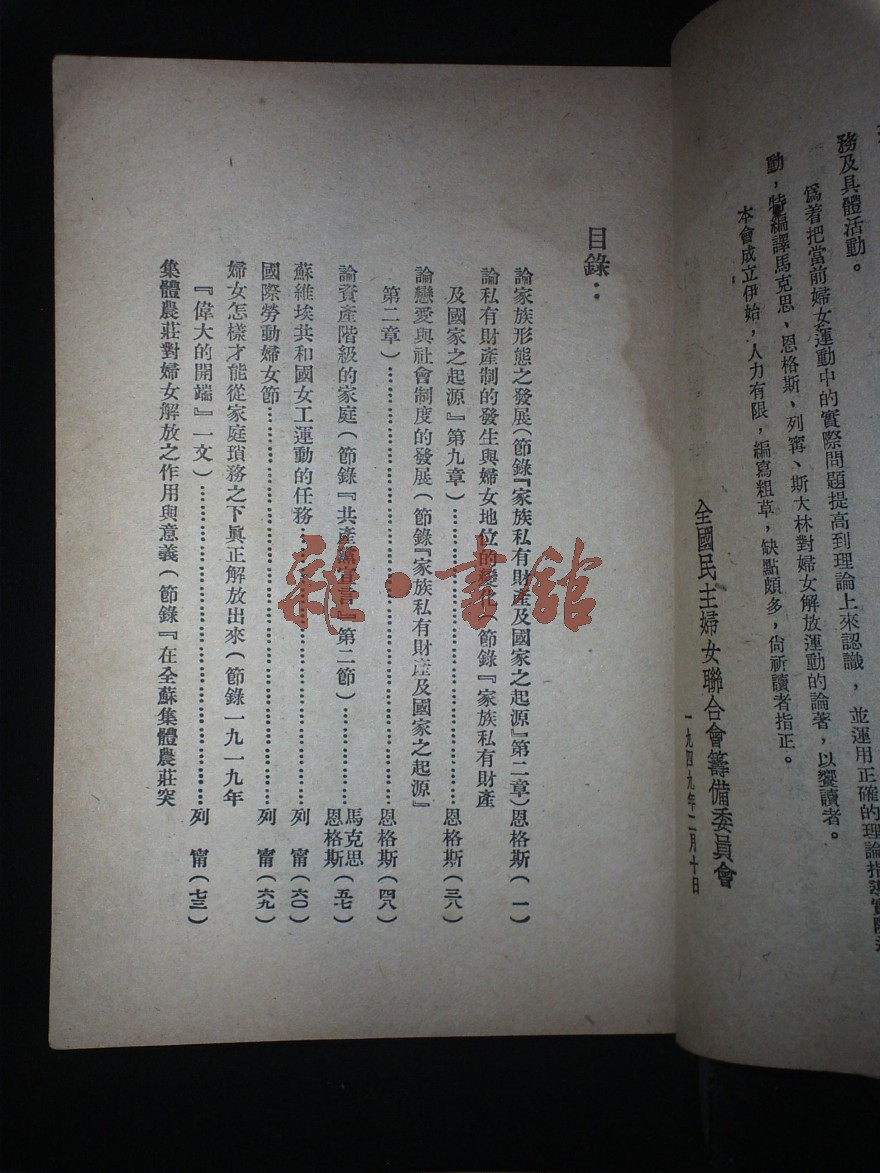 務及具體活動。
爲着把當前婦女運動中的實際問題提高到理論上來認識，並運用正確的理論指導實際
動，特編譯馬克思、恩格斯、列甯、斯大林對婦女解放運動的論著，以饗讀者。
本會成立伊始，人力有限，編寫粗草，缺點頗多，尙祈讀者指正。
全國民主婦女聯合會籌備委員會
一九四九年二月十日
目錄：
論家族形態之發展（節錄『家族私有財產及國家之起源』第二章）恩格斯（一）
論私有財產制的發生與婦女地位的變化（節錄『家族私有財產
及國家之起源』第九章）……恩格斯（三八）
論戀愛與社會制度的發展（節錄『家族私有財產及國家之起源』
第二章）……恩格斯（四八）
論資產階級的家庭（節錄『共產黨宣言』第二節）……馬克思 恩格斯（五七）
蘇維埃共和國女工運動的任務……列　甯（六〇）
國際勞動婦女節……列　甯（六九）
婦女怎樣才能從家庭瑣務之下眞正解放出來（節錄一九一九年
『偉大的開端』一文）……列　甯（七三）
集體農莊對婦女解放之作用與意義（節錄『在全蘇集體農莊突
雜·書館